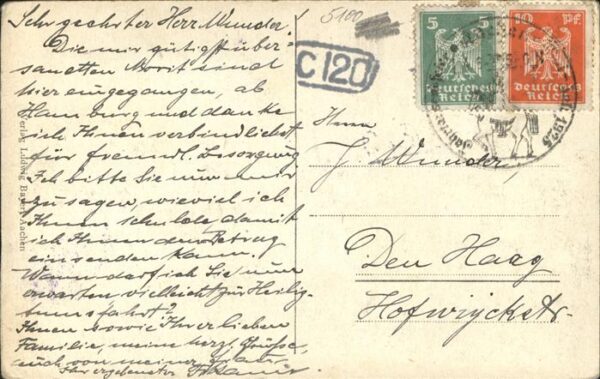 Sehr geehrter Herr Wunder.
Die mir gütigst über-
sandten sind
hier eingegangen, ab
Hamburg und danke
ich Ihnen verbindlichst
für freundl. Besorgung
Ich bitte Sie nun mir
zu sagen, wieviel ich
Ihnen schulde damit
ich Ihnen den Betrag
einsenden kann.
Wann darf ich Sie nun
erwarten vielleicht zur Heilig-
tumsfahrt?
Ihnen sowie Ihrer lieben
Familie, meine herzl. Grüsse,
auch von meiner
Ihr ergebenster
Verlag Ludwig Bayer, Aachen
5100
C 120
5 5
Deutsches
Reich
10 Pf.
Deutsches
Reich
1925
Herrn
J. Wunder,
Den Haag
Hofwijckstr.